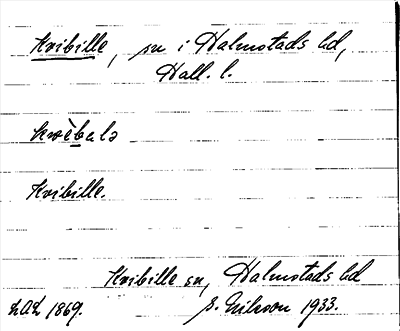 Kvibille, sn i Halmstads hd,
Hall. l.
Kvibille.
Kvibille sn, Halmstads hd
LAL 1869. S. Nilsson 1933.